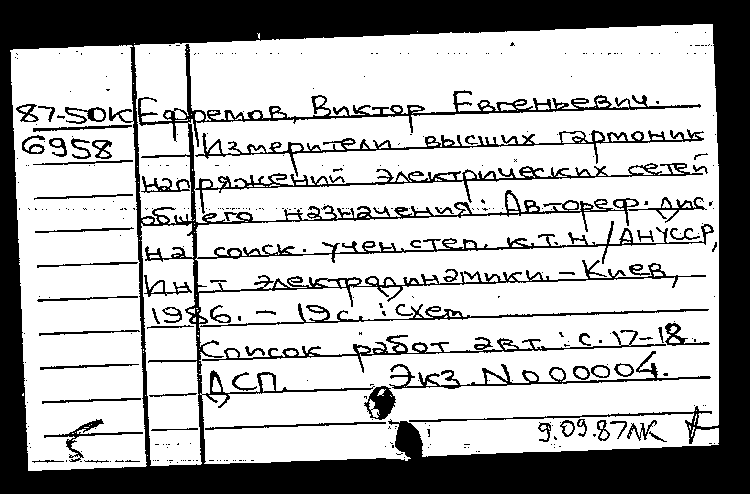 87-50К Ефремов, Виктор Евгеньевич.
6958 Измерители высших гармоник
напряжений электрических сетей
общего назначения: Автореф. дис.
на соиск. учен. степ. к.т.н. / АНУССР,
Ин-т электродинамики. - Киев,
1986. - 19 с. : схем.
Список работ авт. : с. 17-18.
ДСП. Экз. № 000004.
9.09.87